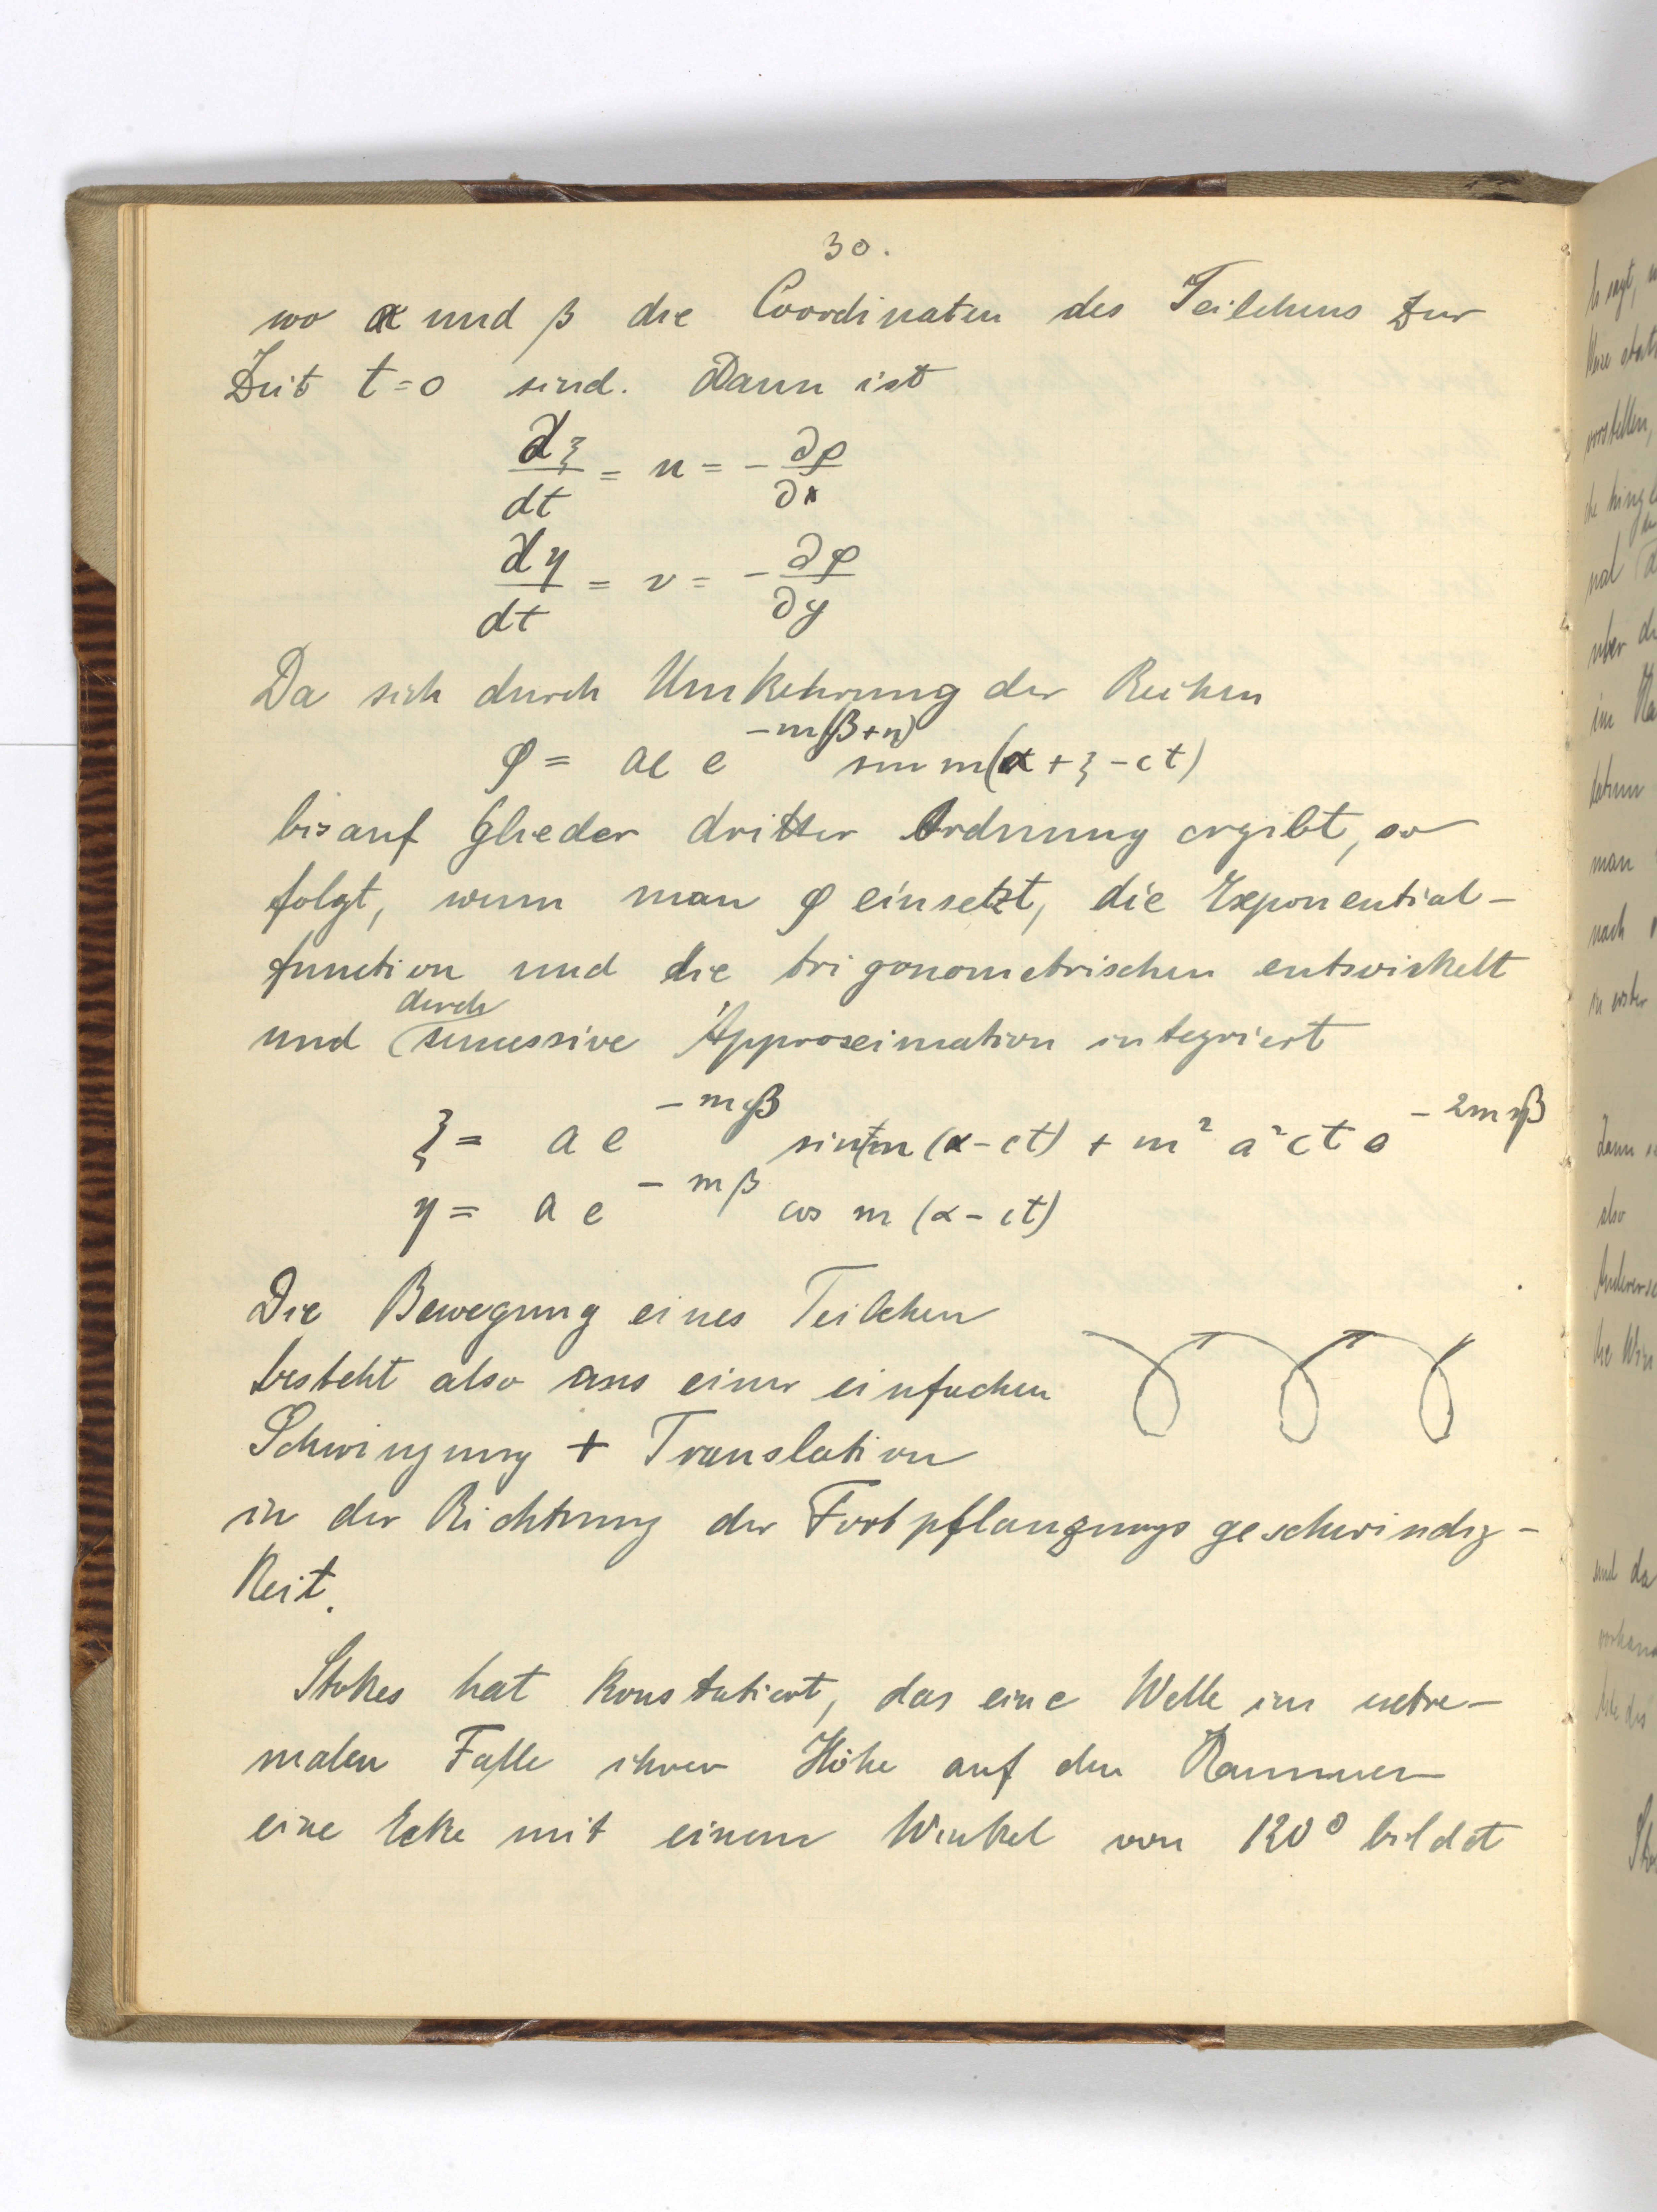 30.
wo α und β die Coordinaten des Teilchens zur
Zeit t=0 sind. Dann ist
dξ/dt = u = - ∂φ/∂x
dη/dt = v = - ∂φ/∂y
Da sich durch Umkehrung der Reihen
φ = ac e^{-m(β+η)} sin m(α+ξ-ct)
bis auf Glieder dritter Ordnung ergibt, so
folgt, wenn man φ einsetzt, die Exponential-
function und die trigonometrischen entwickelt
und durch successive Approximation integriert
ξ = a e^{-mβ} sin m (α-ct) + m² a² c t e^{-2mβ}
η = a e^{-mβ} cos m (α-ct)
Die Bewegung eines Teilchen
besteht also aus einer einfachen
Schwingung + Translation
in der Richtung der Fortpflanzungsgeschwindig-
keit.
Stokes hat konstatiert, das eine Welle im extre-
malen Falle ihrer Höhe auf den Kammer
eine Ecke mit einem Winkel von 120° bildet